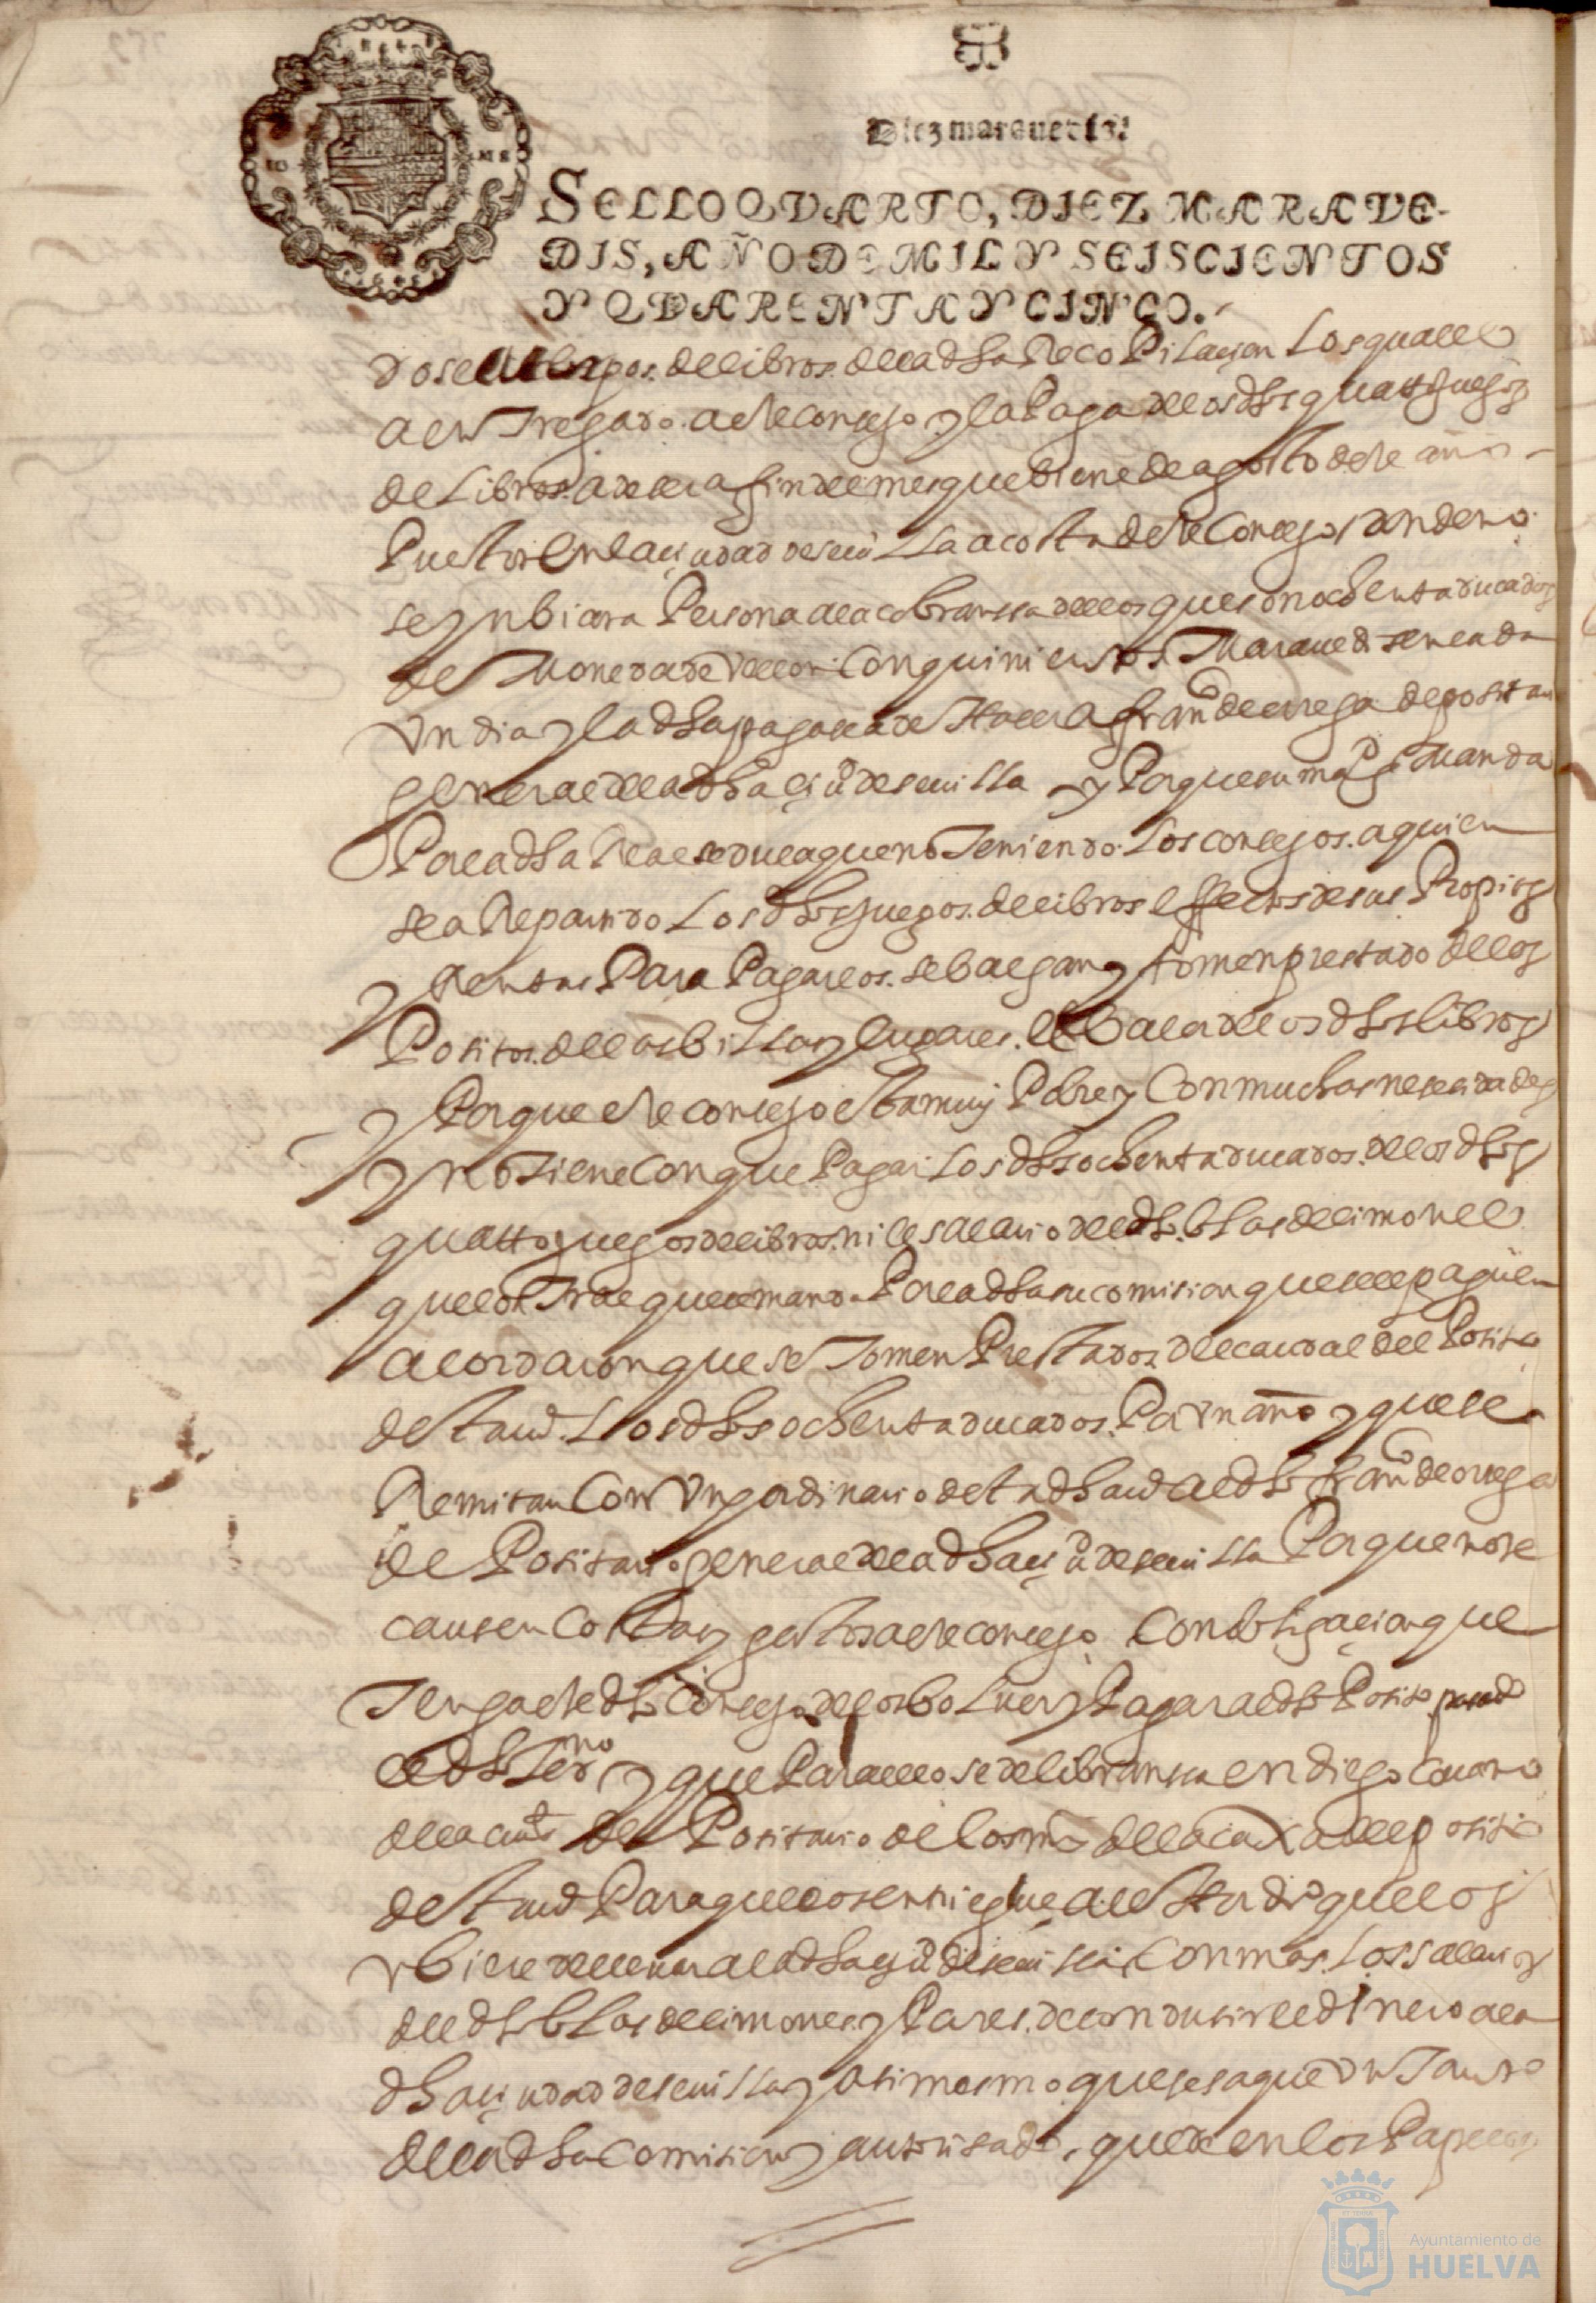 Diez marauedis.
SELLO QVARTO, DIEZ MARAVE-
DIS, AÑO DE MIL Y SEISCIENTOS
Y QVARENTA Y CINCO.
dose cuerpos de libros de la dha Recopilaçion Los quales
a entregado a este conçejo y la Paga de los dhos quatto juegos
de Libros a de ser a fin del mes que biene de agosto deste año
Puestos en la çiudad de seuilla a costa deste Conçejo donde no
se ynbiara Persona a la cobransa dellos que son ochenta ducados
de Moneda de Vellon Con quinientos Marauedis en cada
Vn dia y la dha paga se a de Haser a franco de orega depositario
general de la dha çiud de seuilla y Porque su magd Manda
Por la dha Real sedula que no Teniendo Los conçejos a quien
se a Repartido Los dhos juegos de libros effectos de sus Propios
y Rentas Para Pagarlos se balgan y tomen prestado de los
Positos de las billas y lugares el balor de los dhos libros
y Porque este conçejo esta muy Pobre y Con muchas nesesidades
y no Tiene Con que Pagar Los dhos ochenta ducados de los dhos
quatto juegos de libros ni el salario del dho blas de limones
que los Trae que le mando Por la dha su comision que se le paguen
acordaron que se Tomen Prestados del caudal del Posito
desta uid Los dhos ochenta ducados Por vn año y que se
Remitan Con Vn hordinario desta dha uid al dho franco de orega
de Positario general de la dha çiud de seuilla Porque no se
causen Costas y gastos a este conçejo Con obligaçion que
Tenga este dho Conçejo de los bolver y Pagar al dho Posito pasado
el dho Termno y que Para ello se de libransa en diego Couano
de la cueua de Positario de los mrs de la caxa del posito
desta uid Para que los entriegue a la Persona que los
vbiere de lleuar a la dha çiud de seuilla Con mas Los salarios
del dho blas de limones y Portes de condusir el dinero a la
dha çiudad de seuilla y asimesmo que se saque vn Tanto
de la dha Comision y autorisado quede en los Papeles
Ayuntamiento de
HUELVA